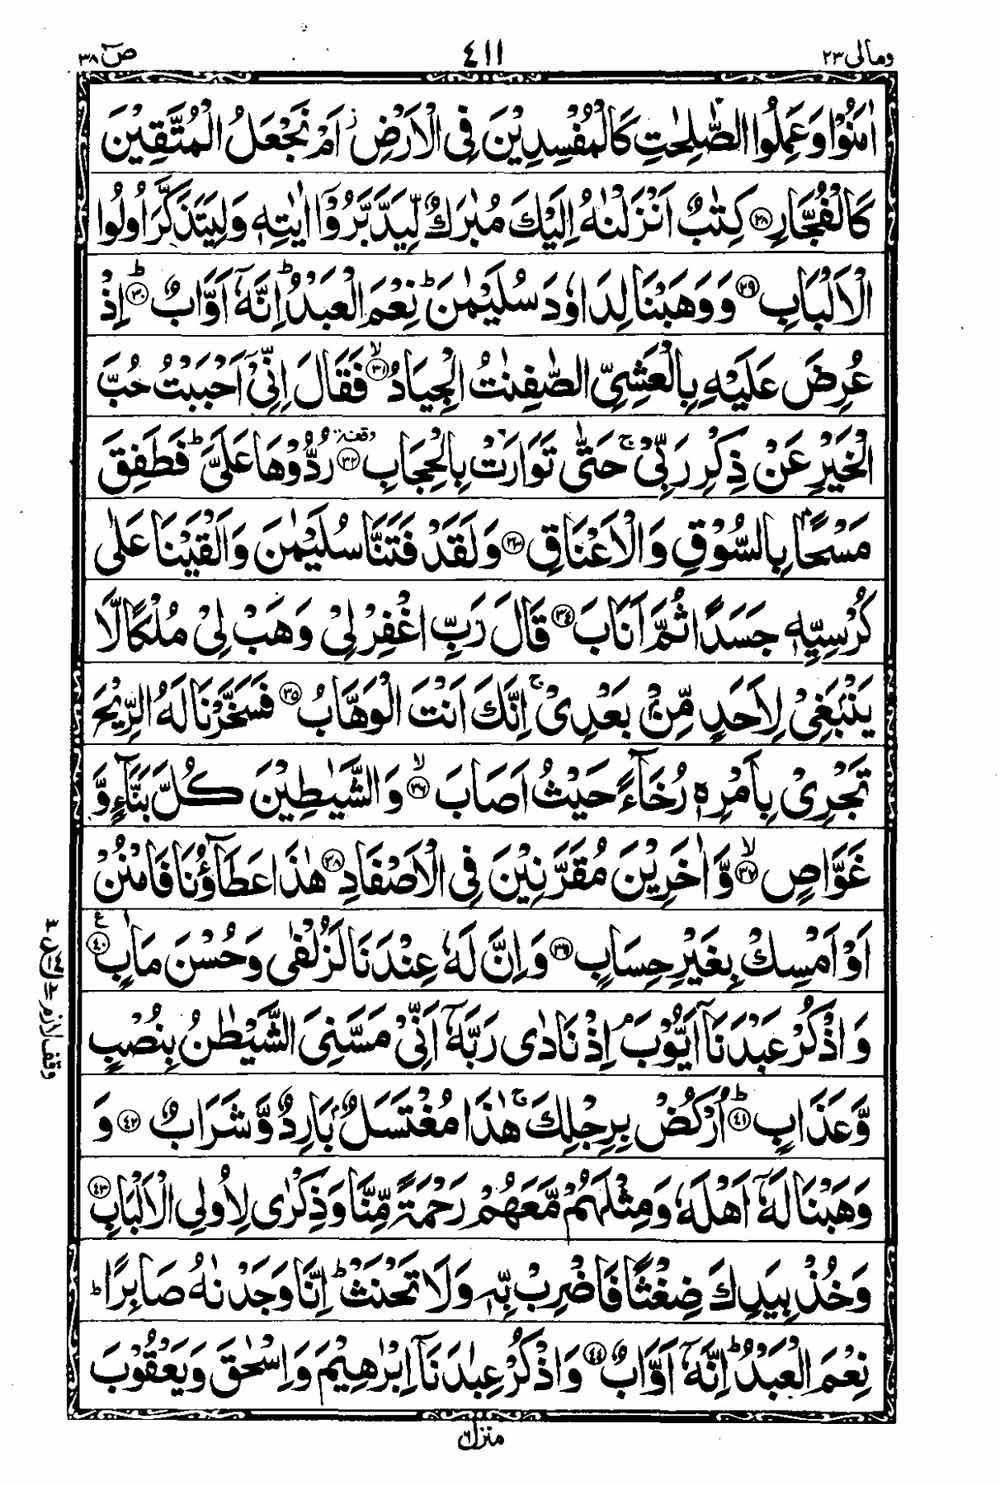 وما لی ٢٣
٤١١
صٓ ٣٨
اٰمَنُوْا وَعَمِلُوا الصّٰلِحٰتِ كَالْمُفْسِدِيْنَ فِى الْاَرْضِ ز اَمْ نَجْعَلُ الْمُتَّقِيْنَ
كَالْفُجَّارِ ٢٨ كِتٰبٌ اَنْزَلْنٰهُ اِلَيْكَ مُبٰرَكٌ لِّيَدَّبَّرُوْٓا اٰيٰتِهٖ وَلِيَتَذَكَّرَ اُولُوا
الْاَلْبَابِ ٢٩ وَوَهَبْنَا لِدَاوٗدَ سُلَيْمٰنَ ؕ نِعْمَ الْعَبْدُ ؕ اِنَّهٗٓ اَوَّابٌ ؕ ٣٠ اِذْ
عُرِضَ عَلَيْهِ بِالْعَشِىِّ الصّٰفِنٰتُ الْجِيَادُ ۙ ٣١ فَقَالَ اِنِّىْٓ اَحْبَبْتُ حُبَّ
الْخَيْرِ عَنْ ذِكْرِ رَبِّىْ ۚ حَتّٰى تَوَارَتْ بِالْحِجَابِ وقفة ٣٢ رُدُّوْهَا عَلَىَّ ؕ فَطَفِقَ
مَسْحًۢا بِالسُّوْقِ وَالْاَعْنَاقِ ٣٣ وَلَقَدْ فَتَنَّا سُلَيْمٰنَ وَاَلْقَيْنَا عَلٰى
كُرْسِيِّهٖ جَسَدًا ثُمَّ اَنَابَ ٣٤ قَالَ رَبِّ اغْفِرْ لِىْ وَهَبْ لِىْ مُلْكًا لَّا
يَنْۢبَغِىْ لِاَحَدٍ مِّنْۢ بَعْدِىْ ۚ اِنَّكَ اَنْتَ الْوَهَّابُ ٣٥ فَسَخَّرْنَا لَهُ الرِّيْحَ
تَجْرِىْ بِاَمْرِهٖ رُخَآءً حَيْثُ اَصَابَ ۙ ٣٦ وَالشَّيٰطِيْنَ كُلَّ بَنَّآءٍ وَّ
غَوَّاصٍ ۙ ٣٧ وَّاٰخَرِيْنَ مُقَرَّنِيْنَ فِى الْاَصْفَادِ ٣٨ هٰذَا عَطَآؤُنَا فَامْنُنْ
اَوْ اَمْسِكْ بِغَيْرِ حِسَابٍ ٣٩ وَاِنَّ لَهٗ عِنْدَنَا لَزُلْفٰى وَحُسْنَ مَاٰبٍ ع ٤٠
وَاذْكُرْ عَبْدَنَآ اَيُّوْبَ ۘ اِذْ نَادٰى رَبَّهٗٓ اَنِّىْ مَسَّنِىَ الشَّيْطٰنُ بِنُصْبٍ
وَّعَذَابٍ ؕ ٤١ اُرْكُضْ بِرِجْلِكَ ۚ هٰذَا مُغْتَسَلٌۢ بَارِدٌ وَّشَرَابٌ ٤٢ وَ
وَهَبْنَا لَهٗٓ اَهْلَهٗ وَمِثْلَهُمْ مَّعَهُمْ رَحْمَةً مِّنَّا وَذِكْرٰى لِاُولِى الْاَلْبَابِ ٤٣
وَخُذْ بِيَدِكَ ضِغْثًا فَاضْرِبْ بِّهٖ وَلَا تَحْنَثْ ؕ اِنَّا وَجَدْنٰهُ صَابِرًا ؕ
نِعْمَ الْعَبْدُ ؕ اِنَّهٗٓ اَوَّابٌ ٤٤ وَاذْكُرْ عِبٰدَنَآ اِبْرٰهِيْمَ وَاِسْحٰقَ وَيَعْقُوْبَ
وقف لازم
منزل ٦